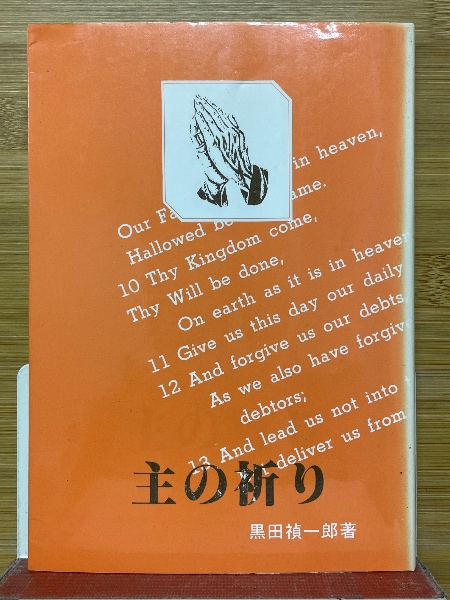 Our Fa in heaven,
Hallowed be ame.
10 Thy Kingdom come,
Thy Will be done,
On earth as it is in heaven
11 Give us this day our daily
12 And forgive us our debts,
As we also have forgive
debtors;
13 And lead us not into
deliver us from
主の祈り
黒田禎一郎著